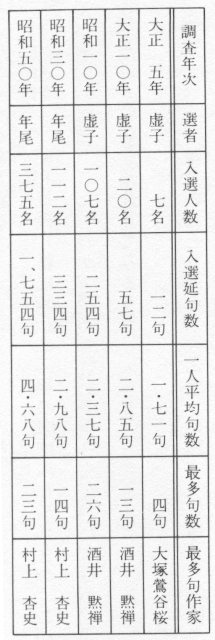 調査年次 選者 入選人数 入選延句数 一人平均句数 最多句数 最多句作家
大正 五年 虚子 七名 一二句 一・七一句 四句 大塚鶯谷桜
大正一〇年 虚子 二〇名 五七句 二・八五句 一三句 酒井 黙禅
昭和一〇年 虚子 一〇七名 二五四句 二・三七句 二六句 酒井 黙禅
昭和三〇年 年尾 一一二名 三三四句 二・九八句 一四句 村上 杏史
昭和五〇年 年尾 三七五名 一、七五四句 四・六八句 二三句 村上 杏史